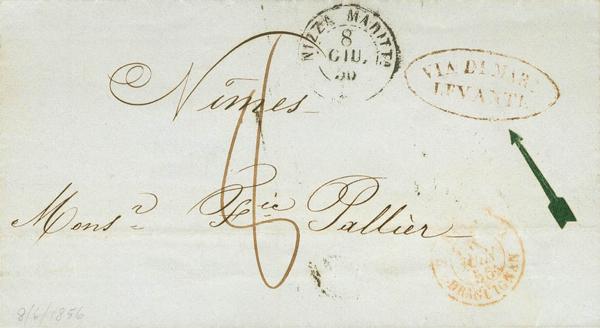 NIZZA MARITT.
8
GIU.
56
VIA DI MARE
LEVANTE
Nîmes
Mons.r Fic Pallier
JUIN
56
DRAGUIGNAN
8/6/1856